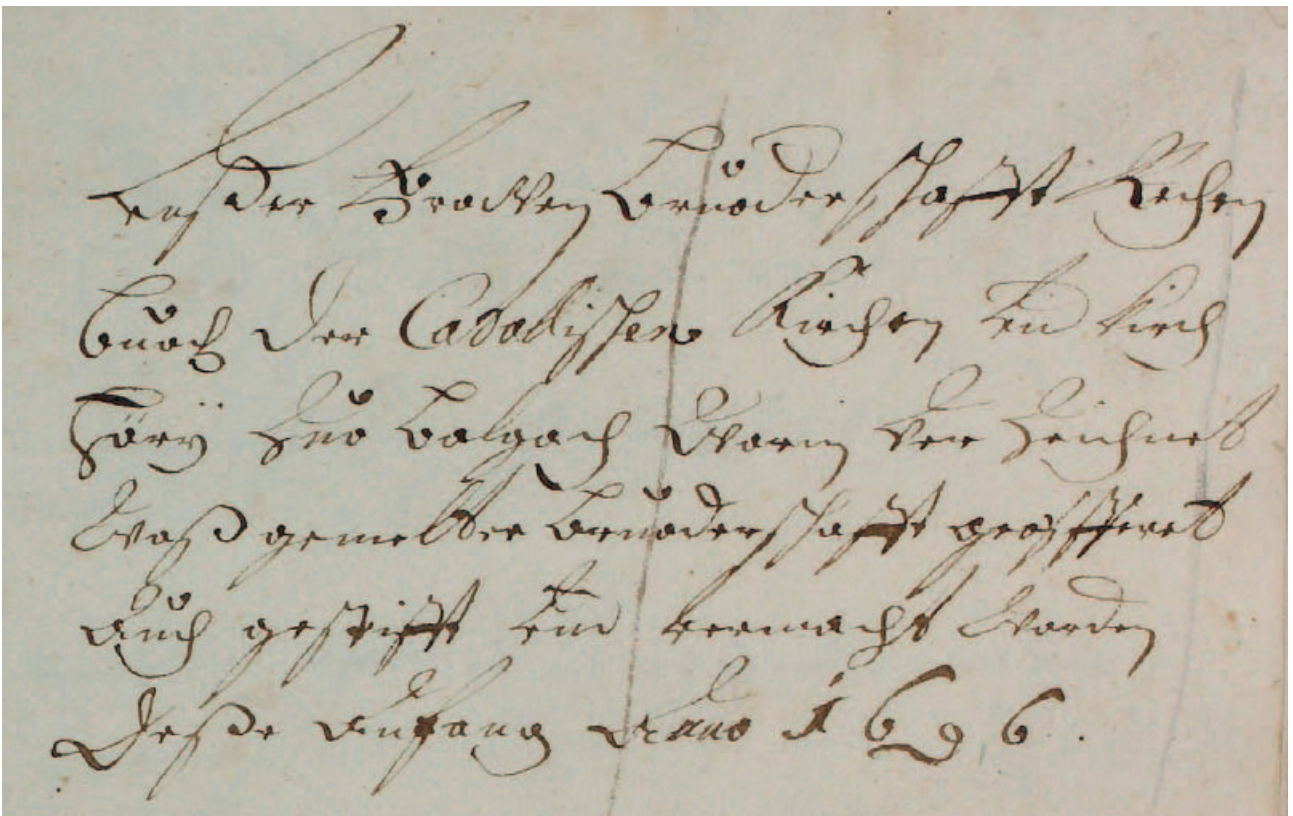 Bruoderschafft Rechen
buoch der Catolischen Kirchen und Kirch
hörÿ Zuo Balgach Warin Ver Zeichnet
Waß gemelter Bruoderschafft geofferet
Auch gestifft und vermacht Worden
Deße Anfang Anno 1696.